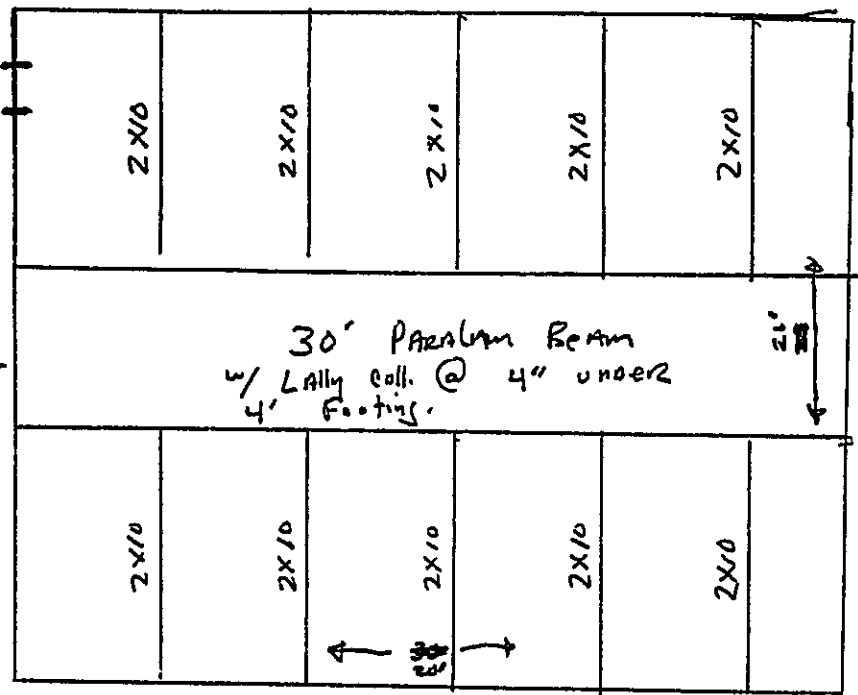 2X10
2X10
2X10
2X10
2X10
30' PARALAM BEAM
w/ LAlly Coll. @ 4" UNDER
4' Footing.
2X10
2X10
2X10
2X10
2X10
20'